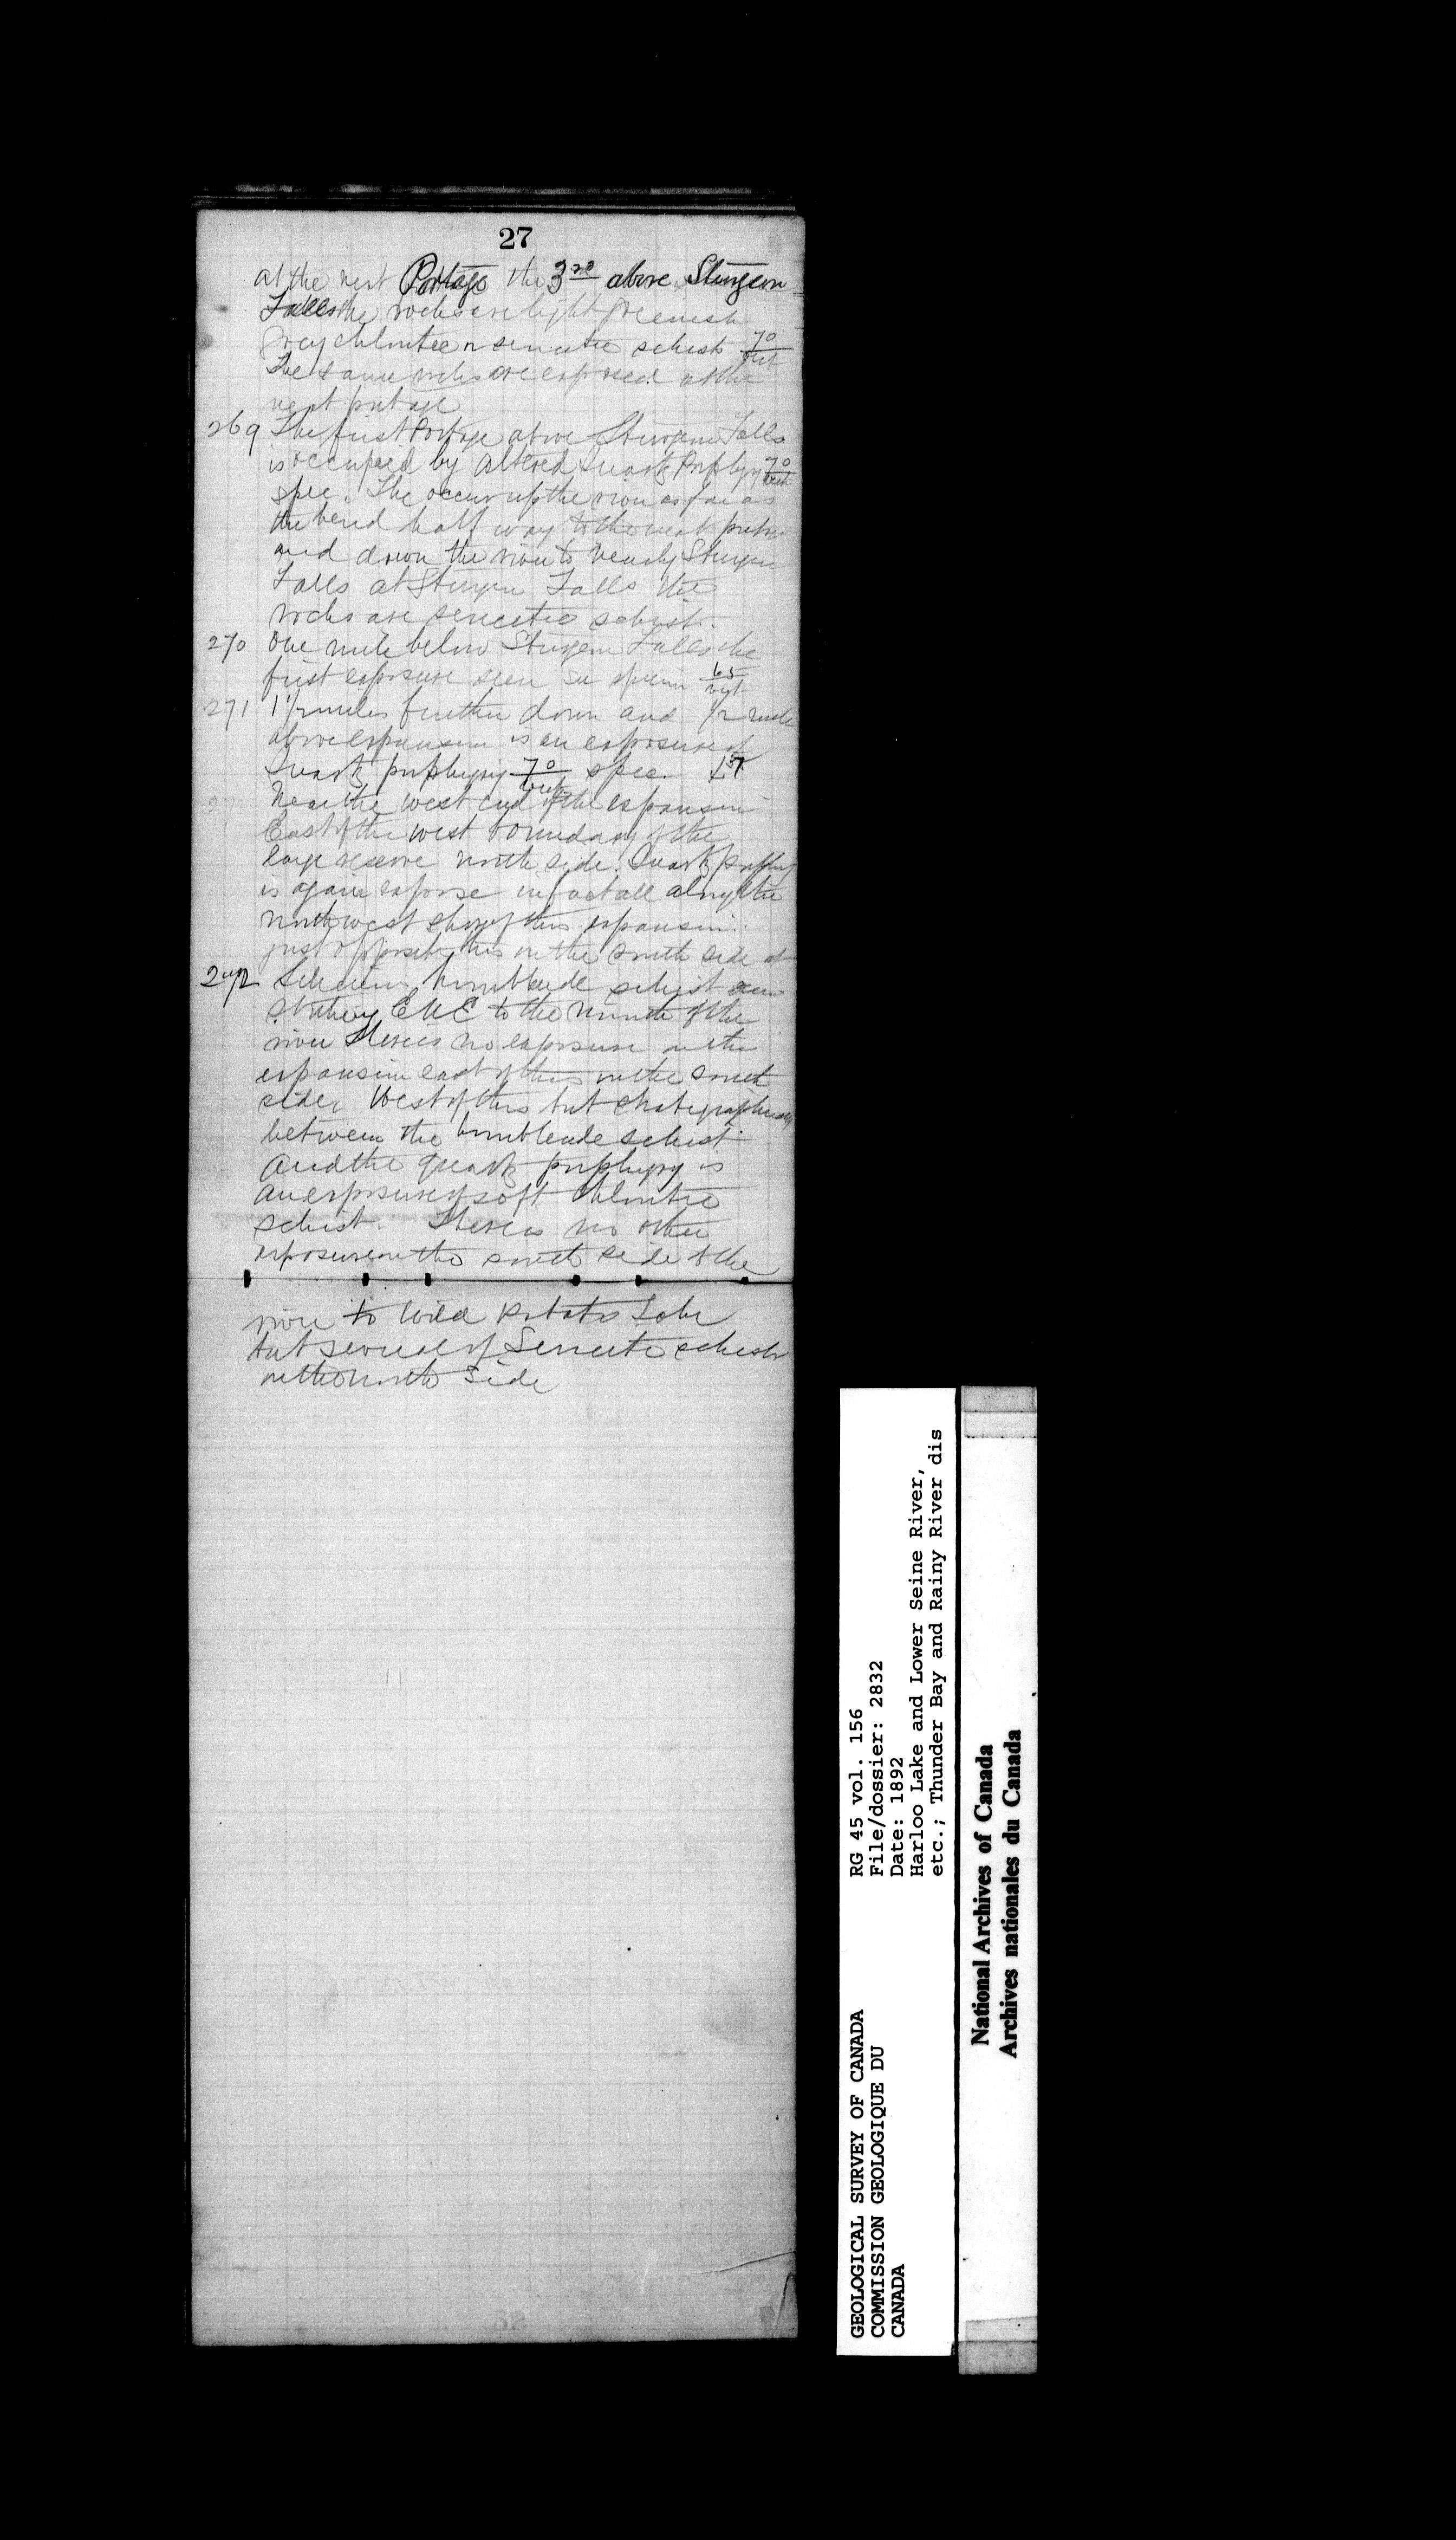 27
at the next Portage the 3rd above Sturgeon
Falls the rocks are light greenish
grey chloritic or sericitic schist 70/vert
The same rocks are exposed at the
next portage
269 The first Portage above Sturgeon Falls
is occupied by altered Quartz Porphyry 70/vert
spec. The occur up the river as far as
the bend half way to the next
and down the river to nearly Sturgeon
Falls at Sturgeon Falls the
rocks are sericitic schist.
270 One mile below Sturgeon Falls the
first exposure seen 65/vert
271 1 1/2 miles further down and 1/2 mile
above expansion is an exposure of
Quartz porphyry 70/vert spec.
Near the west end of the expansion
East of the west boundary of the
large reserve north side. Quartz porphyry
is again expose in fact all along the
northwest shore of this expansion.
just opposite this on the south side
272 hornblende schist
striking ENE to the mouth of the
river There is no exposure on the
expansion east of this on the south
side. West of this but
between the hornblende schist
and the quartz porphyry is
an exposure of soft chloritic
schist. There is no other
exposure on the south side of the
river to Wild Potato Lake
but several of Sericite schists
on the north side
RG 45 vol. 156
File/dossier: 2832
Date: 1892
Harloo Lake and Lower Seine River,
etc.; Thunder Bay and Rainy River dis
GEOLOGICAL SURVEY OF CANADA
COMMISSION GEOLOGIQUE DU
CANADA
National Archives of Canada
Archives nationales du Canada